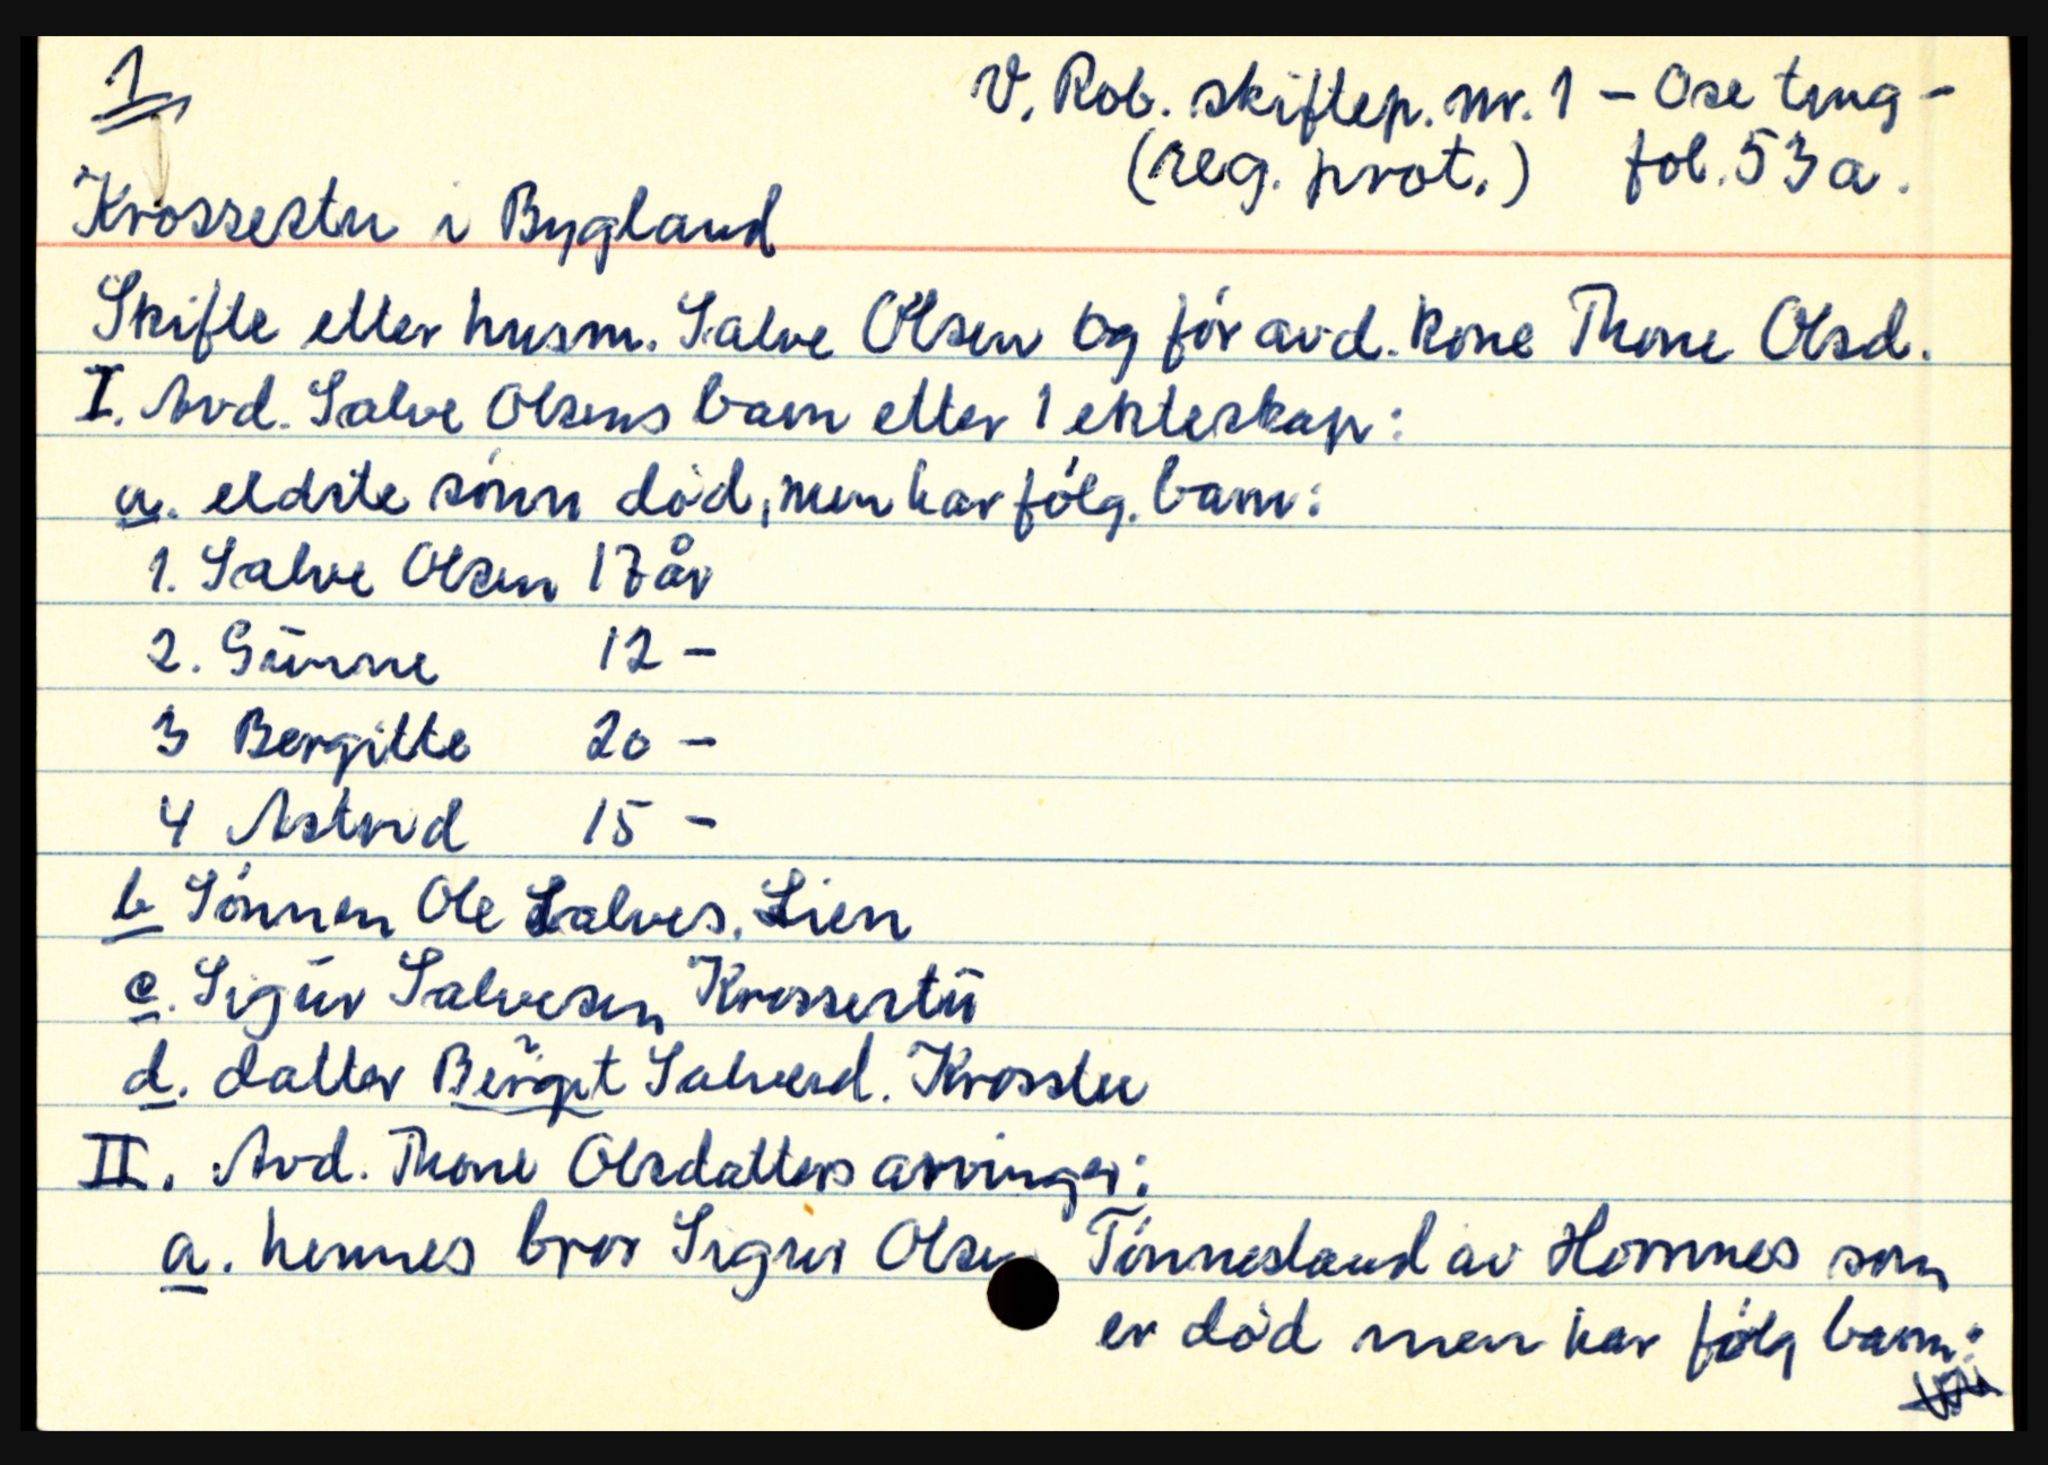 1
V. Rob. skiftep. nr. 1 – Ose ting –
(reg. prot.) fol. 53a.
Krossestu i Bygland
Skifte etter husm. Salve Olsen og før avd. kone Thone Olsd.
I. Avd. Salve Olsens barn etter 1 ekteskap:
a. eldste sønn død, men har følg. barn:
1. Salve Olsen 17 år
2. Gunne 12 –
3 Bergitte 20 –
4 Astrid 15 –
b Sønnen Ole Salves. Lien
c. Sigur Salvesen Krossestu
d. datter Berget Salvesd. Krosstu
II. Avd. Thone Olsdatters arvinger:
a. hennes bror Sigur Olsen Tønnesland av Hornnes som
er død men har følg barn: